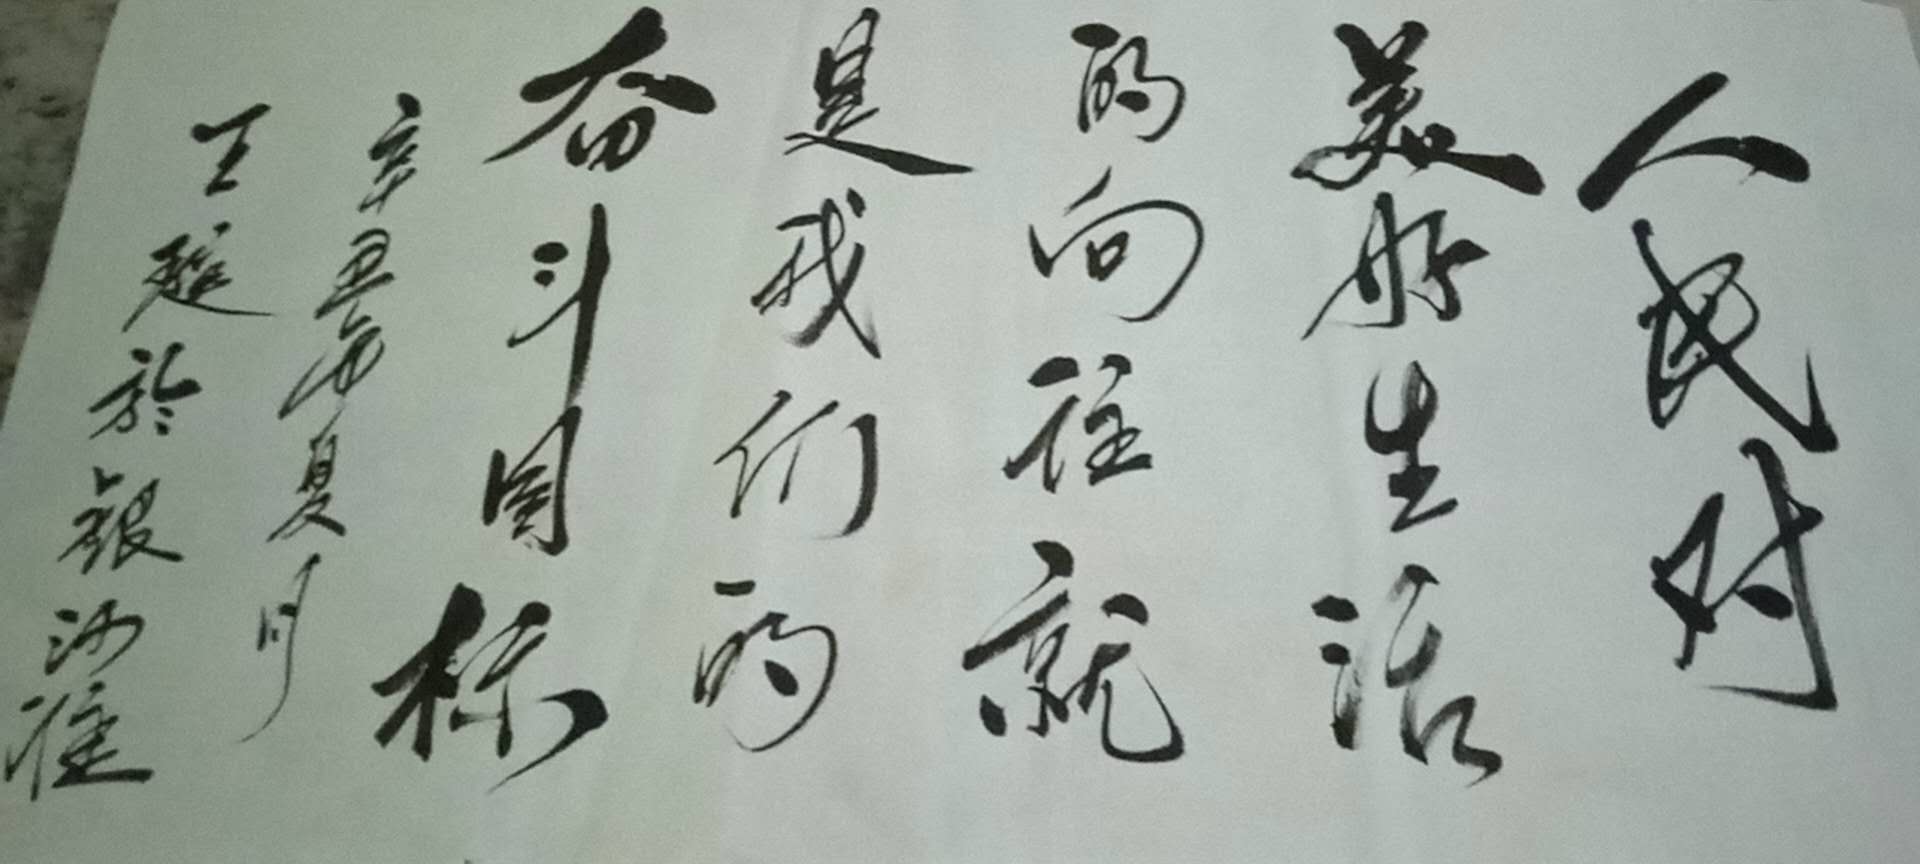 人民对
美好生活
的向往就
是我们的
奋斗目标
辛丑年夏月
王 於银沙滩